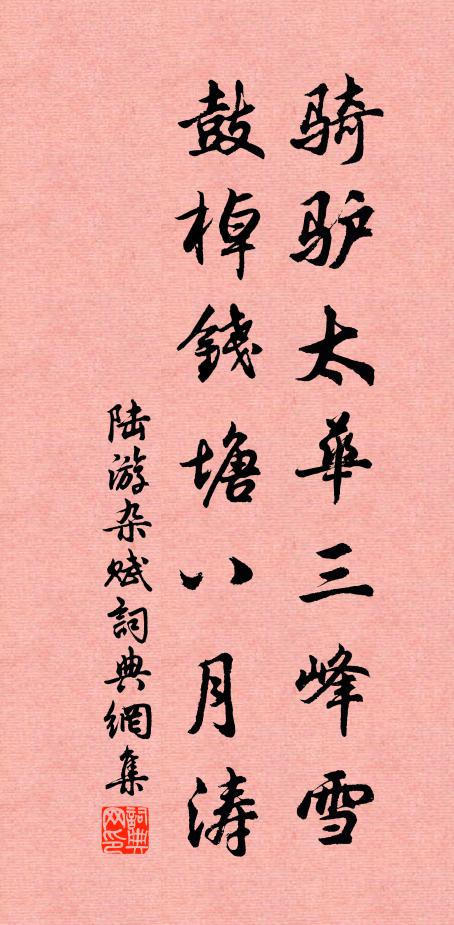 骑驴太华三峰雪
鼓棹錢塘八月涛
陆游杂赋詞典網集
詞典网印